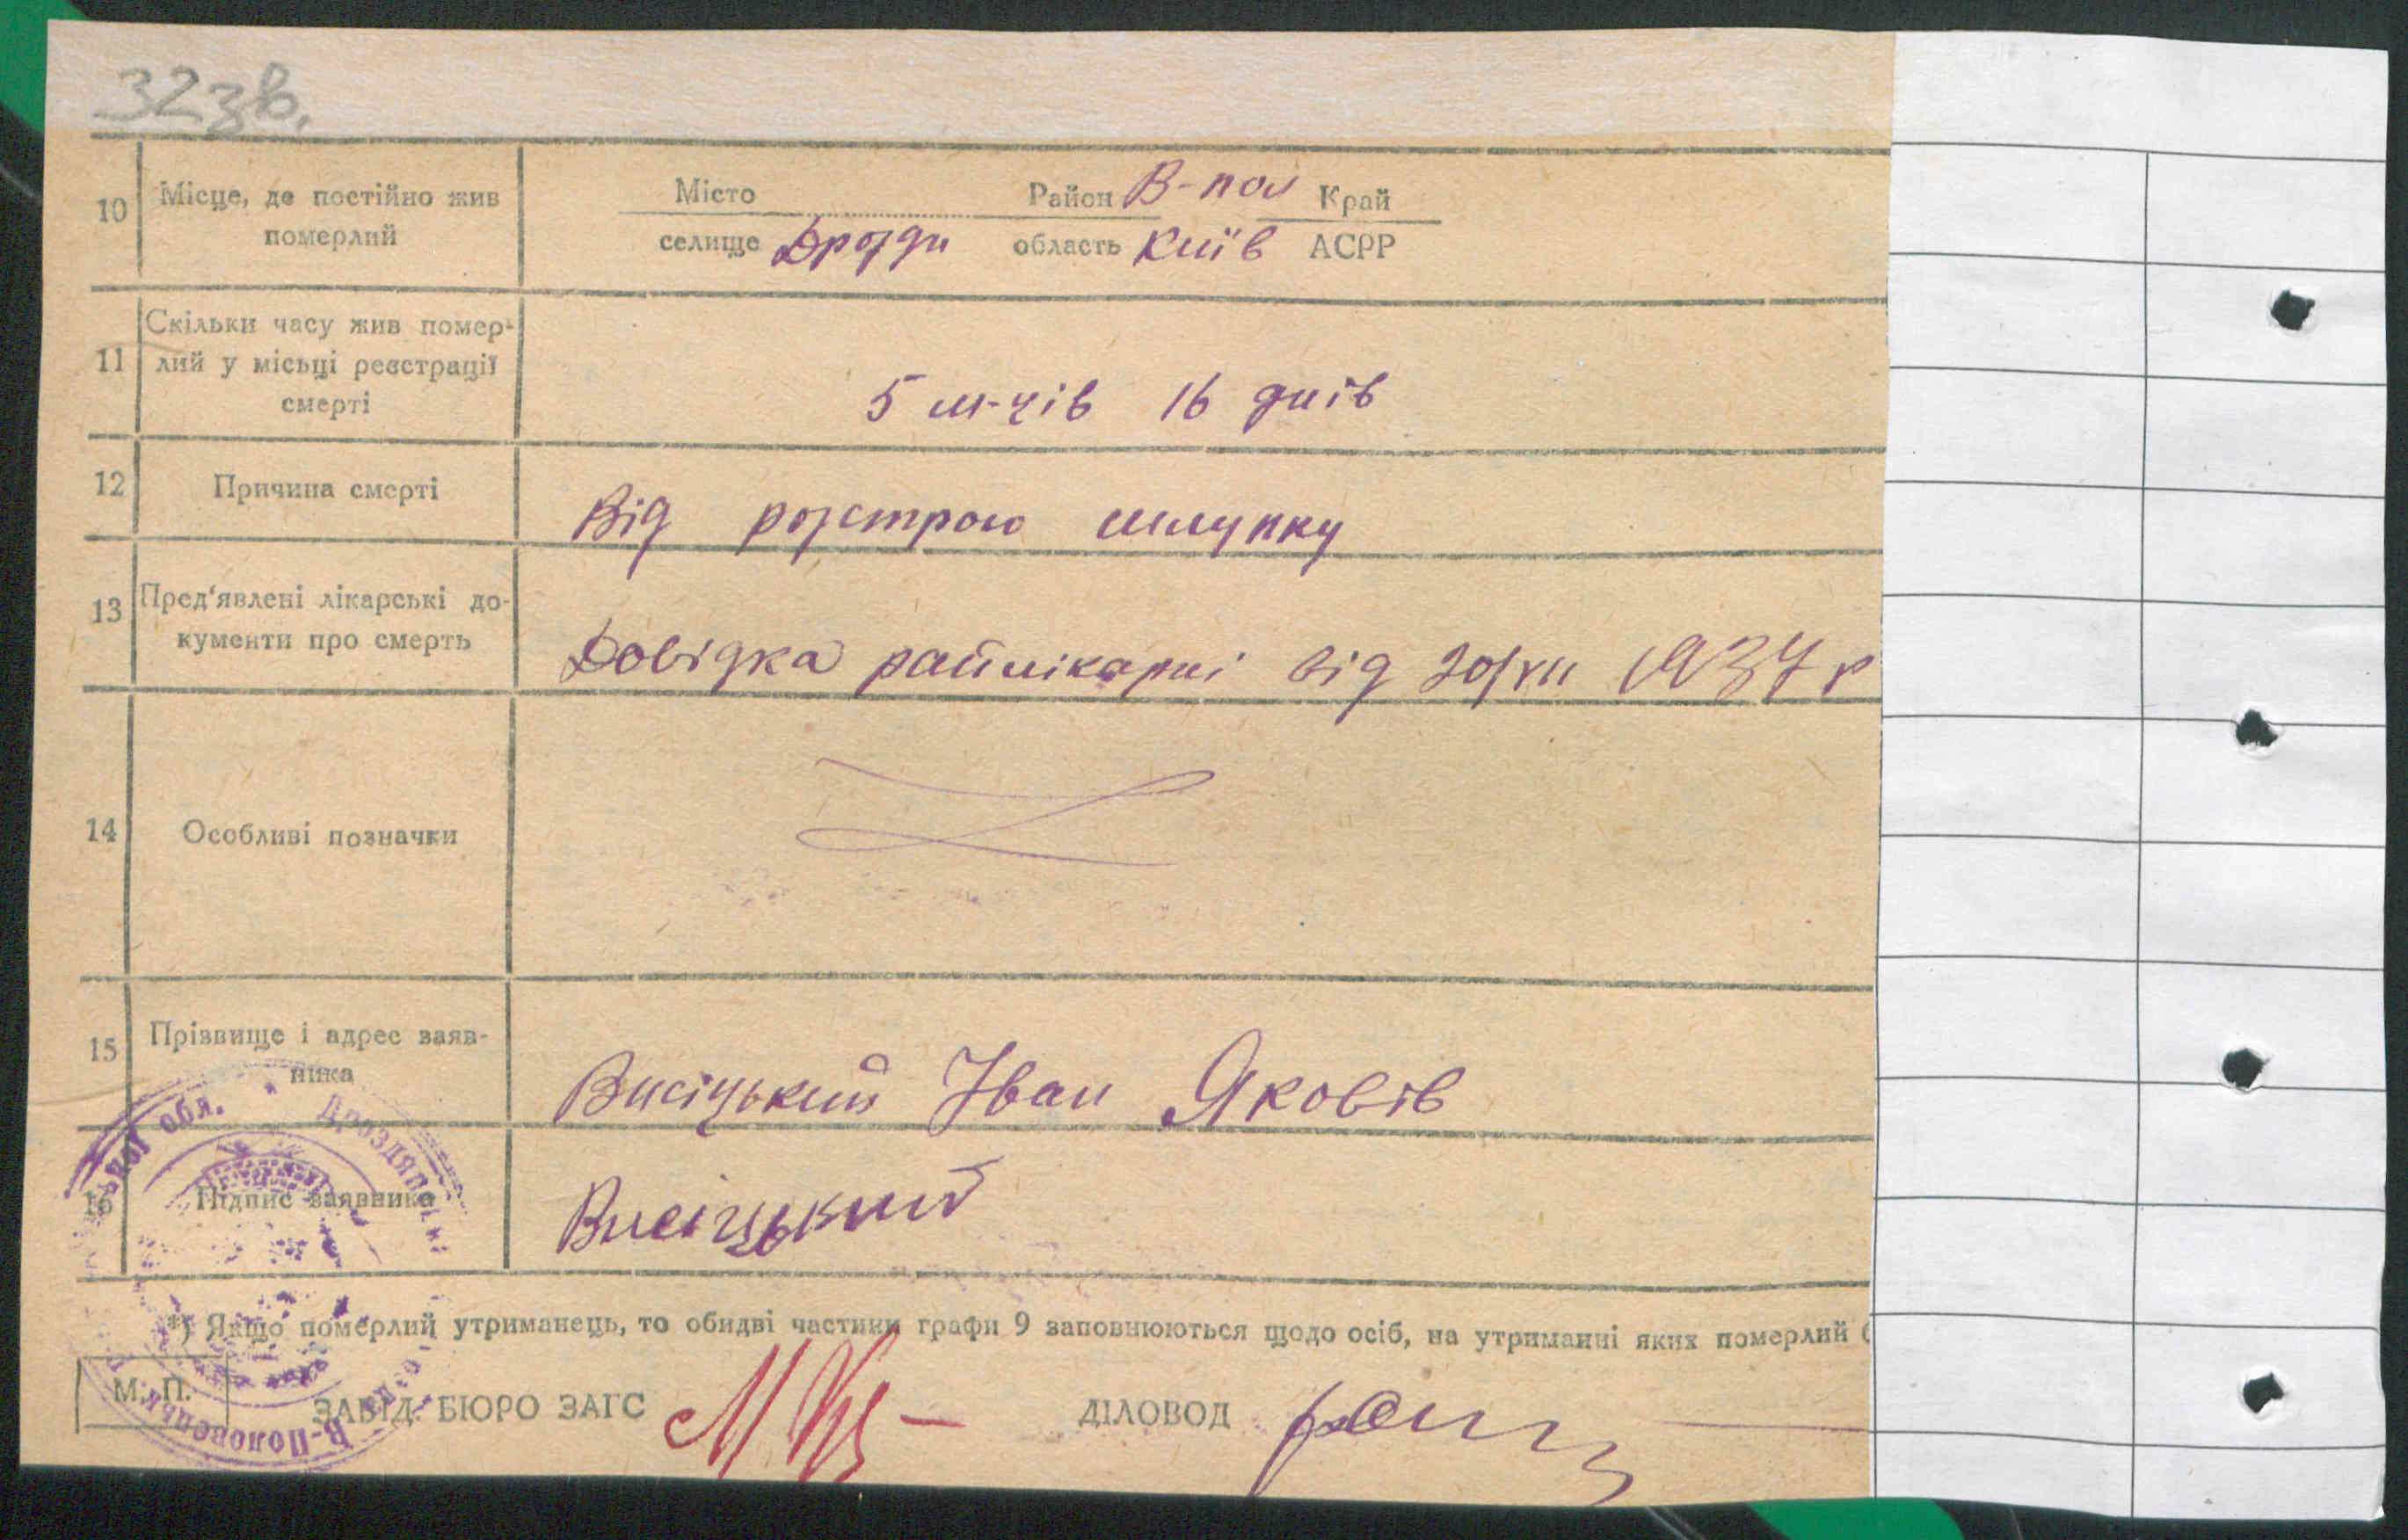 32зв.
10 Місце, де постійно жив
померлий
Місто Район В-пол Край
селище Дрозди область Київ АСРР
11 Скільки часу жив помер-
лий у місьці реєстрації
смерті
5 м-ців 16 днів
12 Причина смерті
Від розстрою шлунку
13 Пред'явлені лікарські до-
кументи про смерть
Довідка райлікарні від 20/VII 1937 р
14 Особливі позначки
15 Прізвище і адрес заяв-
ника
Висіцький Іван Яковів
16 Підпис заявника
Висіцький
*) Якщо померлий утриманець, то обидві частини графи 9 заповнюються щодо осіб, на утриманні яких померлий
М. П.
ЗАВІД. БЮРО ЗАГС
ДІЛОВОД
обл.
В-Половецьк